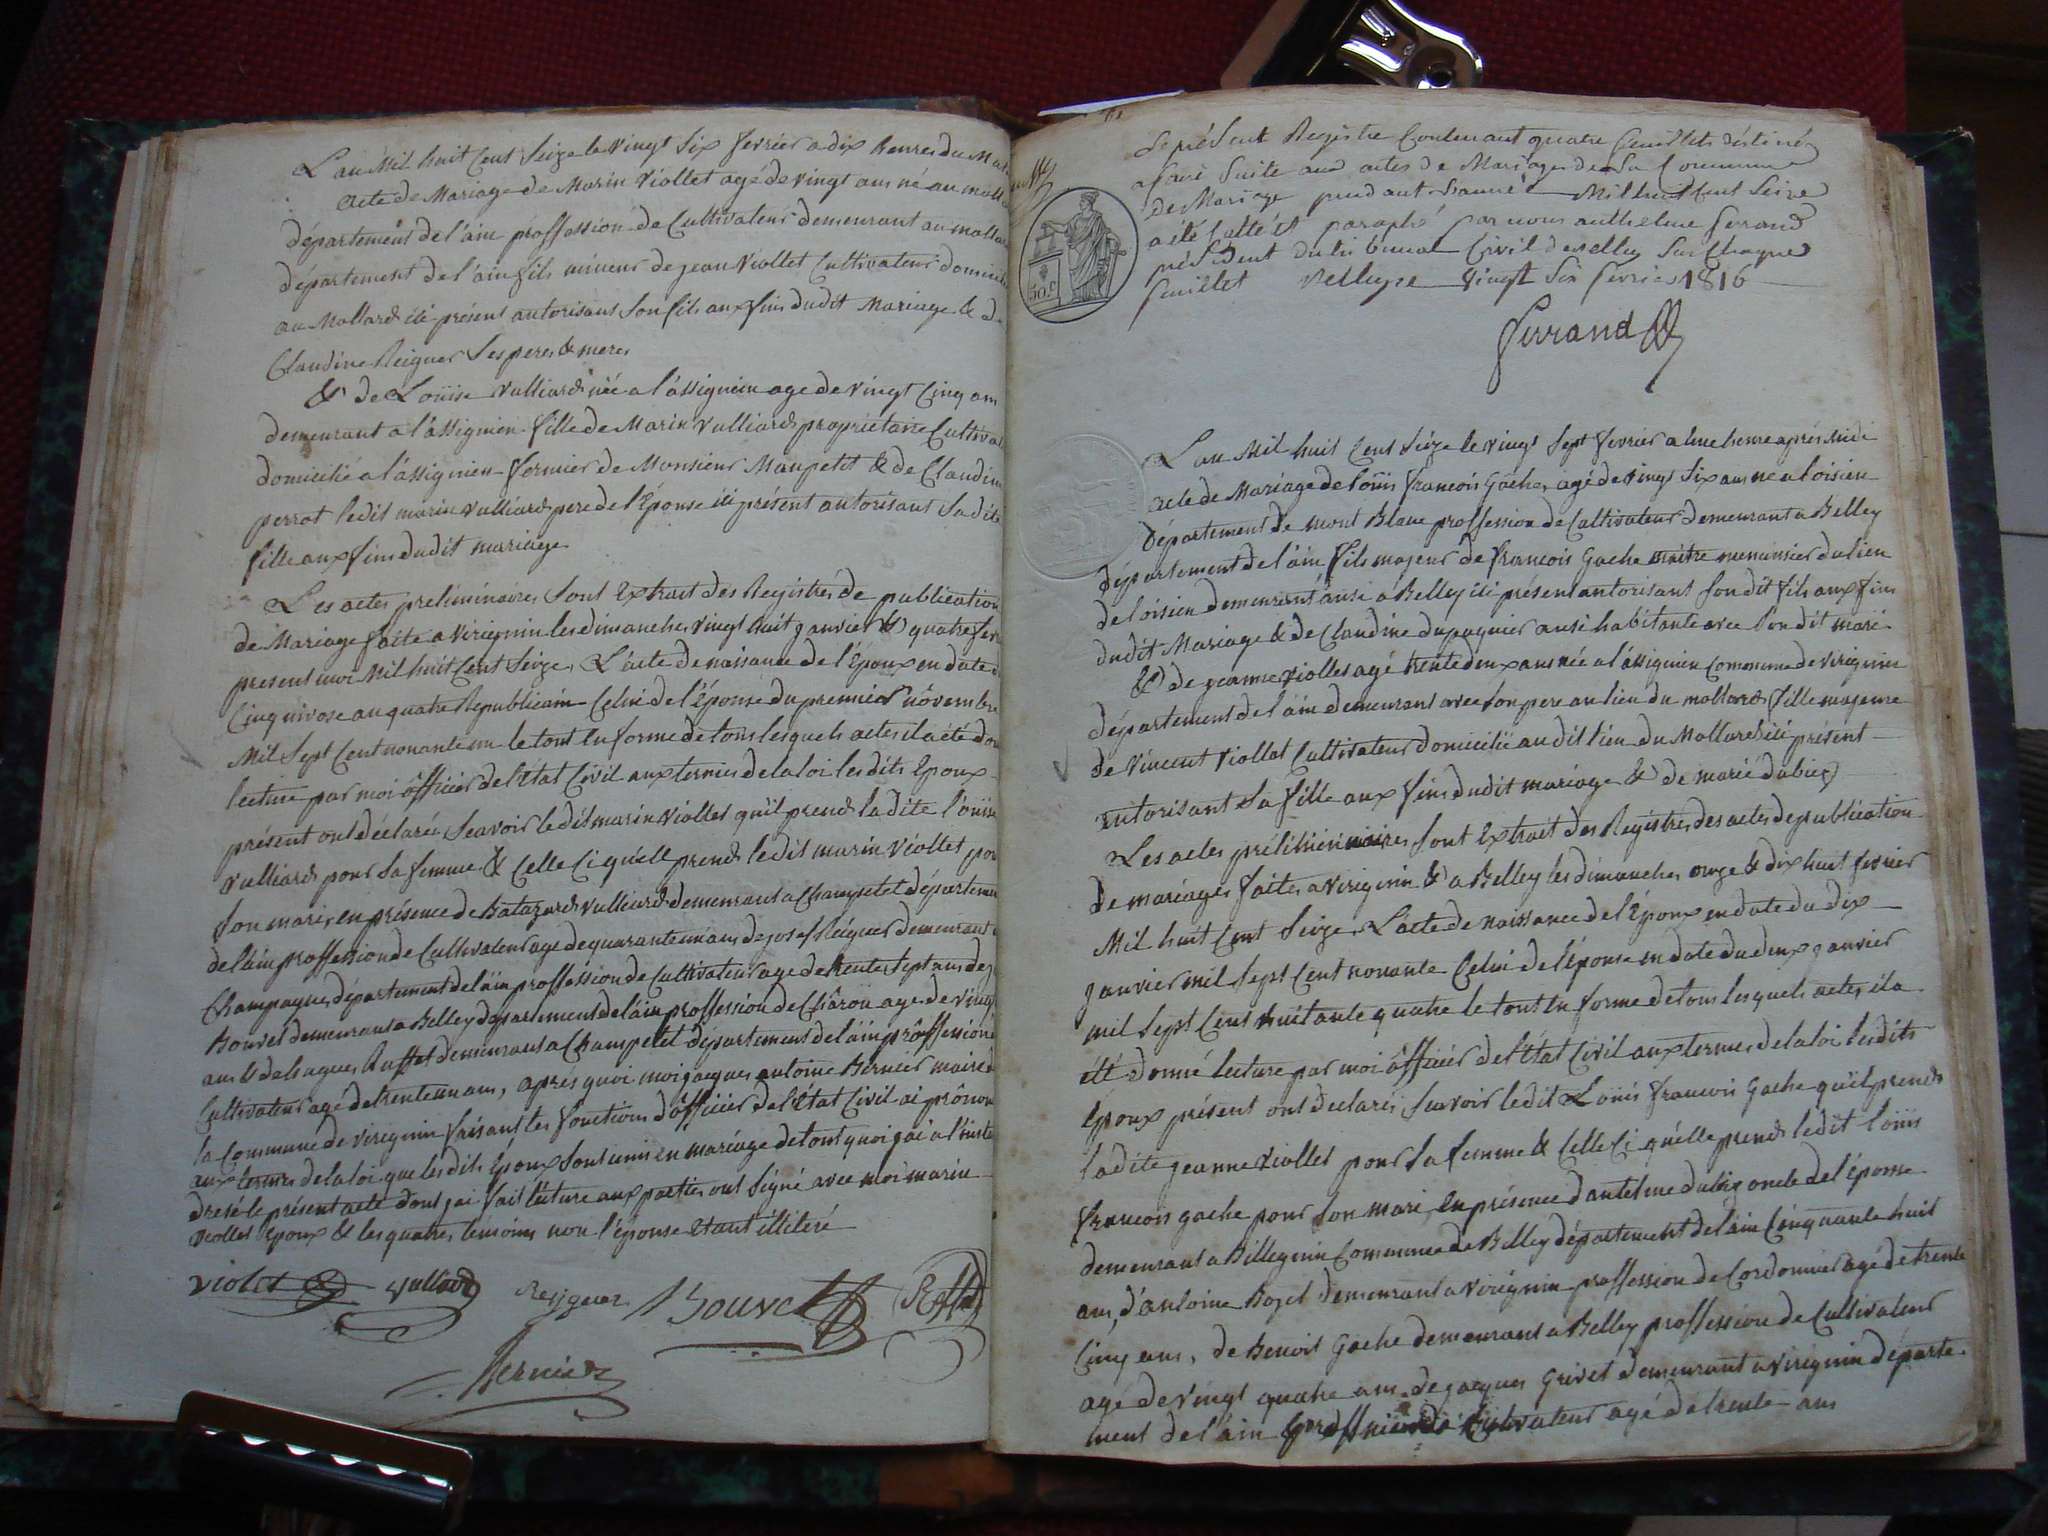 L'an Mil huit Cent Seize le vingt Six fevrier a dix heures du
acte de Mariage de Marin Viollet agé de vingt ans né au
département de l'ain proffession de Cultivateur demeurant au mollard
département de l'ain fils mineur de jean Viollet Cultivateur
au Mollard ici présent autorisant Son fils aux fins dudit Mariage & de
Claudine Reiguer Ses peres & meres
& de Louise vulliard née a l'assignien age de vingt Cinq ans
demeurant a l'assignien fille de Marin Vulliard propriétaire
domicilié a l'assignien fermier de Monsieur Maupetit & de
perrot ledit marin vulliard pere de l'Épouse ici présent autorisant Sadite
fille aux fins dudit mariage
Les actes preliminaires Sont Extrait des Registres de publication
de Mariage faite a virignin les dimanches vingt huit janvier & quatre
present moi Mil huit Cent Seize, L'acte de naissance de l'Époux en date
Cinq nivose an quatre Républicain Celui de l'Épouse du premier novembre
Mil Sept Cent nonante un le tout En forme de tous lesquels actes il a été
lecture par moi officier de l'État Civil aux termes de la loi lesdits Époux
présent ont déclarés Seavoir ledit marin Viollet qu'il prend ladite Louise
Vulliard pour Sa femme & Celle Ci qu'elle prend ledit marin Viollet
Son mari, en présence de Batazard vulliard demeurant a Champetel
de l'ain proffession de Cultivateur agé de quarante un ans de josef Reiguer demeurant
Champagne département de l'ain proffession de Cultivateur age de trente Sept ans de
Bouvet demeurant a Belley département de l'ain proffession de agé de
ans & de hugues Ruffet demeurant a Champetel département de l'ain proffession
Cultivateur agé de trente un ans, après quoi moi jacques antoine Bernier maire
la Commune de virignin faisant les fonctions d'officier de l'État Civil ai
aux termes de la loi que lesdits Époux Sont unis En mariage de tout quoi j'ai a l'
dresé le présent acte dont j'ai fait lecture aux parties ont Signé avec moi marin
viollet Époux & les quatres temoins non l'épouse Etant illiteré
violet Vulliard Reijguer Bouvet
Bernier
Le présent Registre Contenant quatre feuillets déstinés
a faire Suite aux actes de Mariages de la Commune
de pendant l'année Mil huit Cent Seize
a été Cotté et paraphé par nous anthelme ferrand
président du tribunal Civil de belley Sur Chaque
feuillet vingt Six fevrier 1816
ferrand
50 c
L'an Mil huit Cent Seize le vingt Sept fevrier a une heure aprés Midi
acte de Mariage de Loüis francois Gache, agé de vingt Six ans né a loisien
département de mont Blanc proffession de Cultivateur demeurant a Belley
département de l'ain fils majeur de francois Gache maitre menuisier du lien
de loisien demeurant ausi a Belley ici présent autorisant Son dit fils aux fins
dudit Mariage & de Claudine dupasquier ausi habitante avec Son dit mari
& de jeanne Viollet agé trente deux ans née a l'assignien Commune de virignin
département de l'ain demeurant avec Son pere au lieu du mollard, fille majeure
de Vincent Viollet Cultivateur domicilié audit lieu du Mollard ici présent
autorisant Sa fille aux fins dudit mariage & de marié dubieg
Les actes préliminaires Sont Extrait des Registres des actes de publication
de mariages faites a virignin & a Belley les dimanches onze & dix huit fevrier
Mil huit Cent Seize, L'acte de naissance de l'Époux en date du dix
janvier mil Sept Cent nonante Celui de l'Épouse en date du deux janvier
mil Sept Cent huitante quatre le tout En forme de tous lesquels actes il a
été donné lecture par moi officier de l'État Civil aux termes de la loi lesdits
Époux présent ont declarés Seavoir ledit Loüis francois Gache qu'il prend
ladite jeanne Viollet pour Sa femme & Celle Ci qu'elle prend ledit Loüis
francois gache pour Son mari, En présence d'antelme dubieg oncle de l'épouse
demeurant a Billegnin Commune de Belley département de l'ain Cinquante huit
ans, d'antoine Bozel demeurant a virignin proffession de Cordonnier agé de trente
Cinq ans, de Benoit Gache demeurant a Belley proffession de Cultivateur
agé de vingt quatre ans de jacques Grivet demeurant a virignin départe
ment de l'ain Cultivateur agé de trente ans